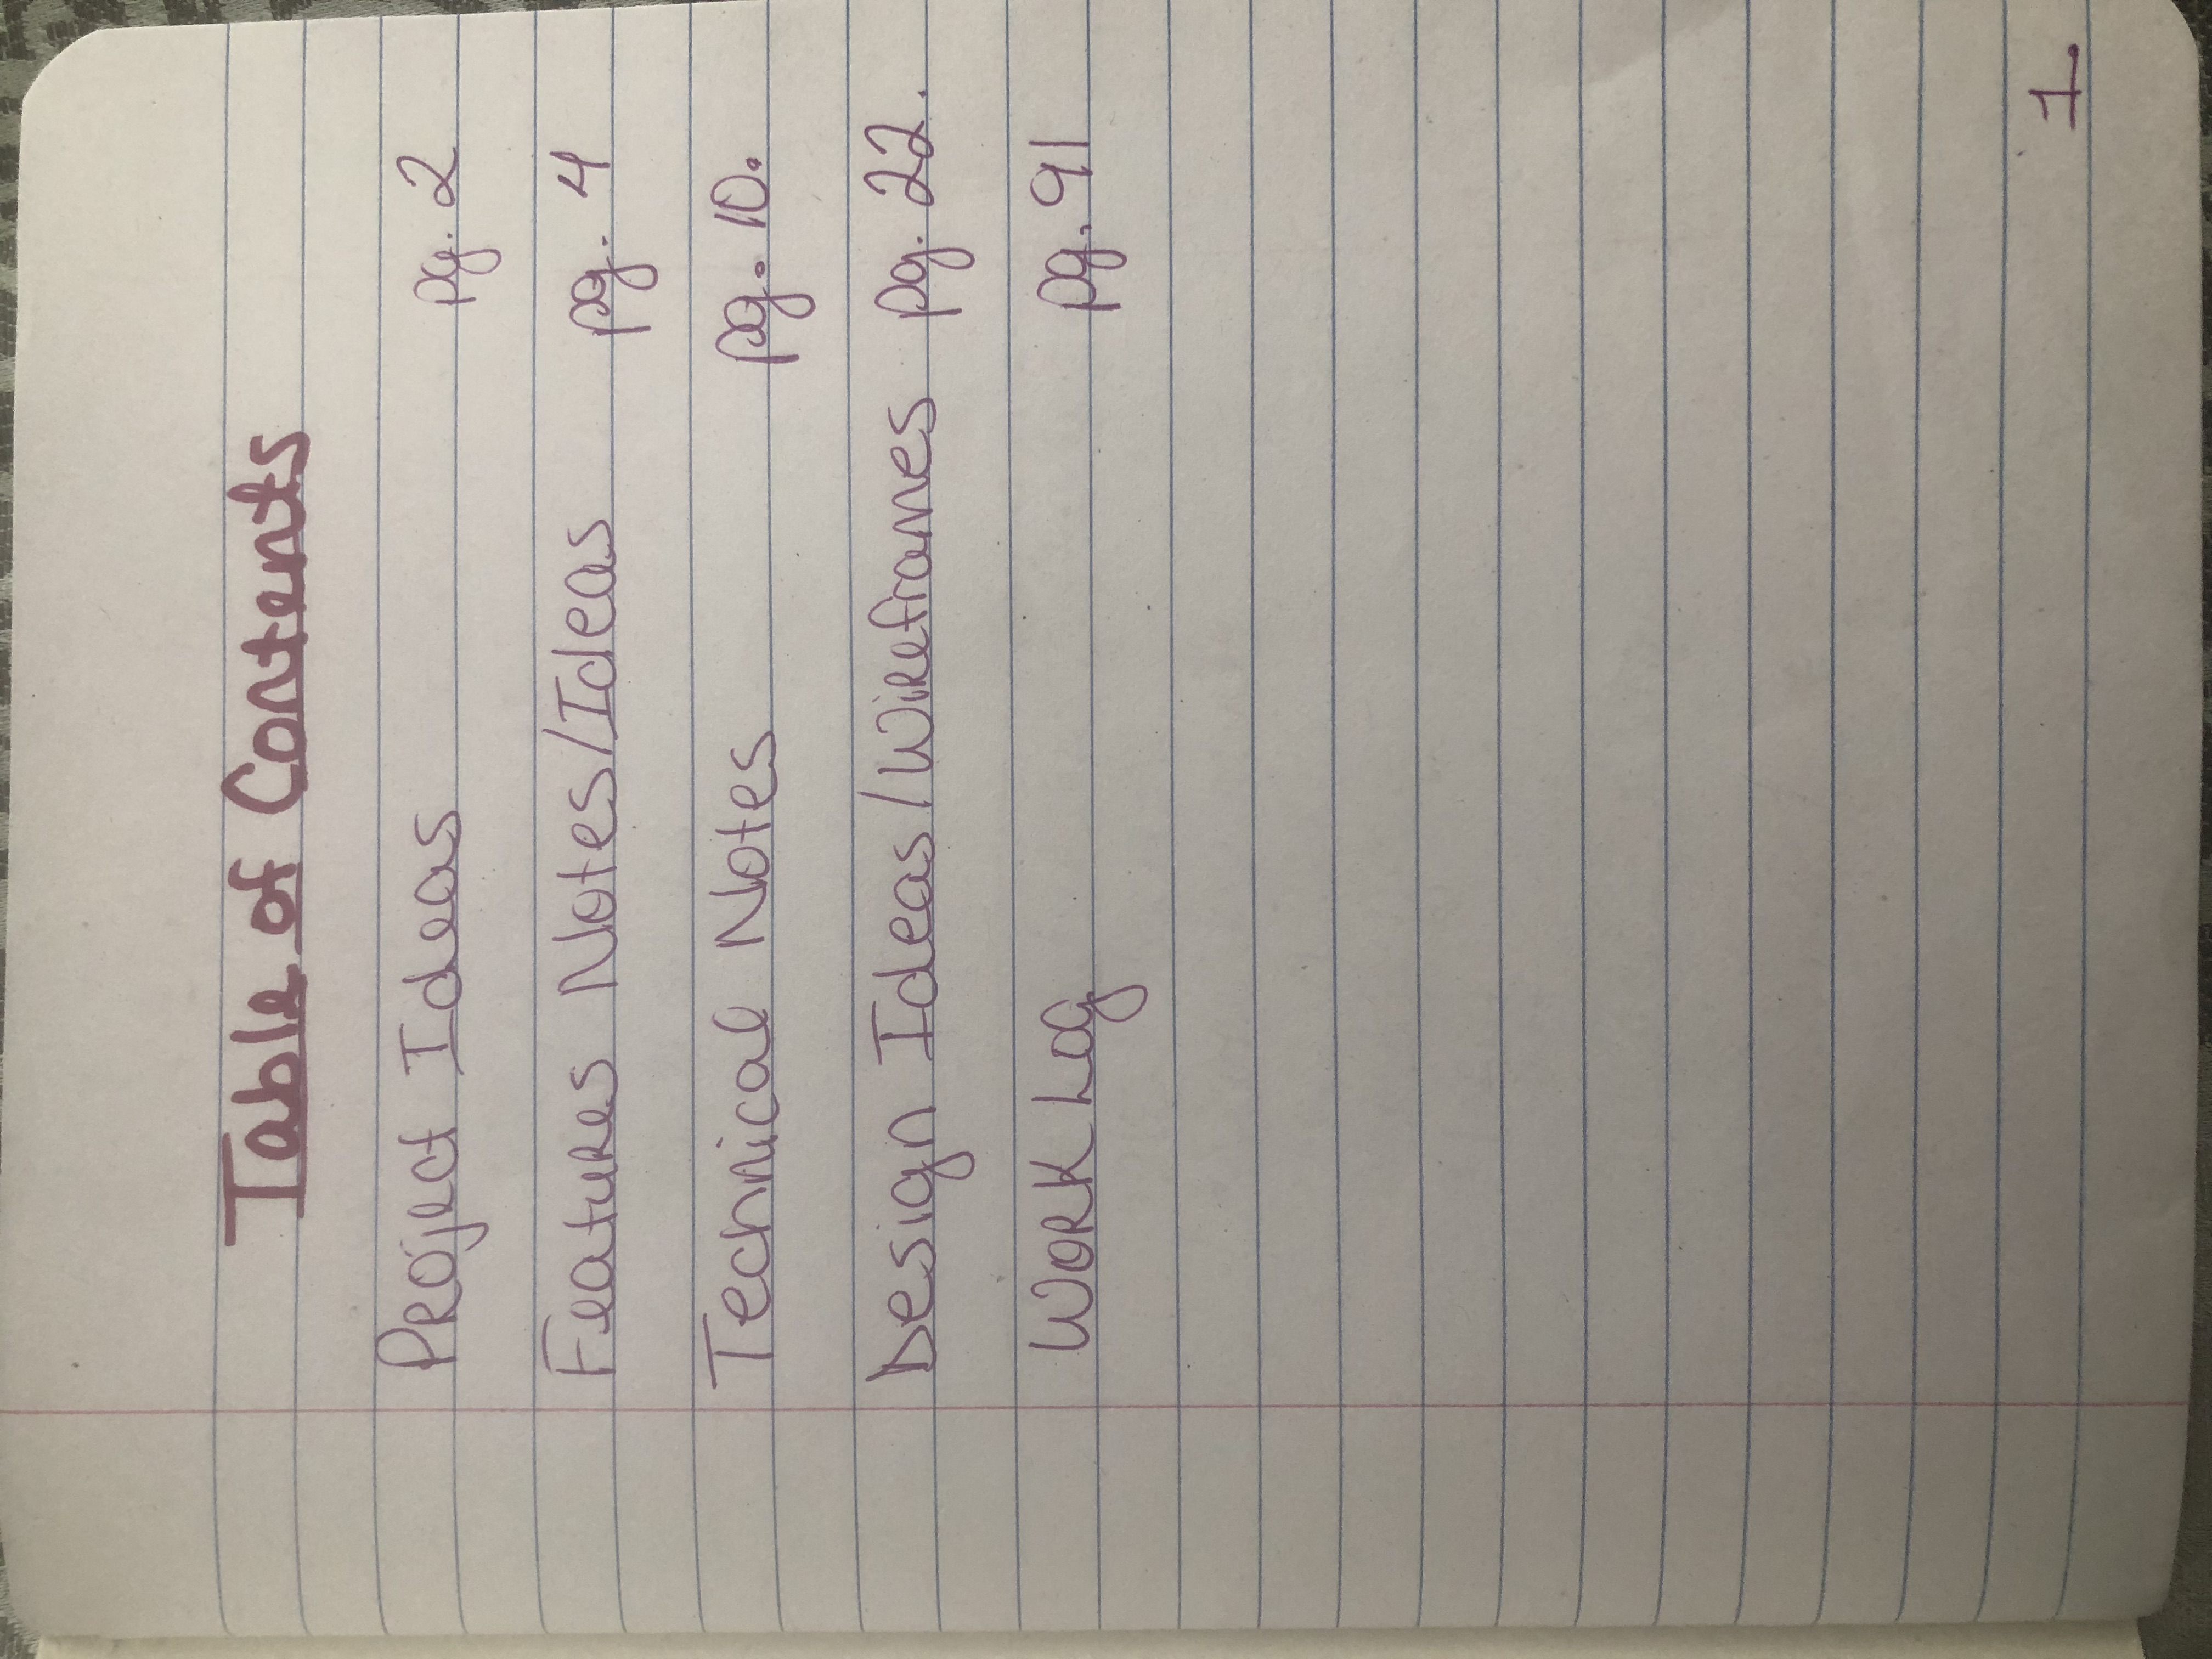 Table of Contents
Project Ideas pg. 2
Features Notes/Ideas pg. 4
Technical Notes pg. 10.
Design Ideas/Wireframes pg. 22.
Work Log pg. 91
1.